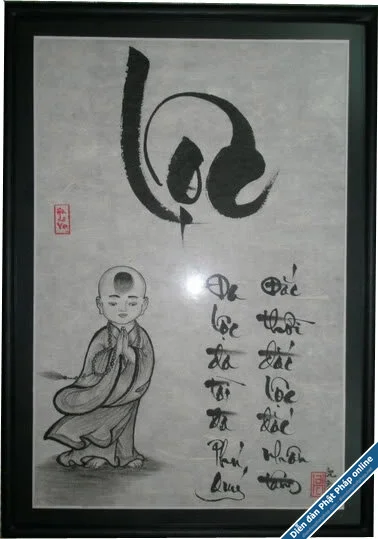 Lộc
Đa lộc đa tài đa Phú Quý
Đắc thời đắc lộc đắc nhân tâm
Diễn đàn Phật Pháp online